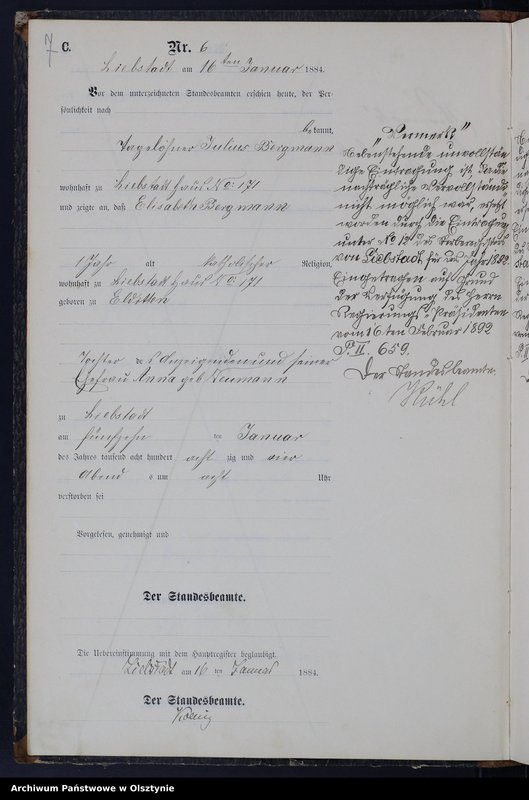 C.
Nr. 6
Liebstadt am 16ten Januar 1884.
Vor dem unterzeichneten Standesbeamten erschien heute, der Per-
sönlichkeit nach
bekannt,
Tagelöhner Julius Bergmann
wohnhaft zu Liebstadt Haus No: 171
und zeigte an, daß Elisabeth Bergmann
1 Jahr alt katholischer Religion,
wohnhaft zu Liebstadt Haus No: 171
geboren zu Elditten
Tochter des Anzeigenden und seiner
Ehefrau Anna geb Neumann
zu Liebstadt
am fünfzehn ten Januar
des Jahres tausend acht hundert acht zig und vier
Abend s um acht Uhr
verstorben sei
Vorgelesen, genehmigt und
Der Standesbeamte.
Die Uebereinstimmung mit dem Hauptregister beglaubigt.
Liebstadt am 16 ten Januar 1884.
Der Standesbeamte.
Koenig
"Vermerk"
Nebenstehende unvollständ-
liche Eintragung ist, da die
nachträgliche Vervollständ
nicht möglich war, ersetzt
worden durch die Eintragung
unter No 12 des
von Liebstadt für das Jahr 1892.
Eingetragen auf Grund
der Verfügung des Herrn
Regierungs-Präsidenten
vom 16ten Februar 1892
P. II. 659.
Der Standesbeamte.
Kühl
Archiwum Państwowe w Olsztynie